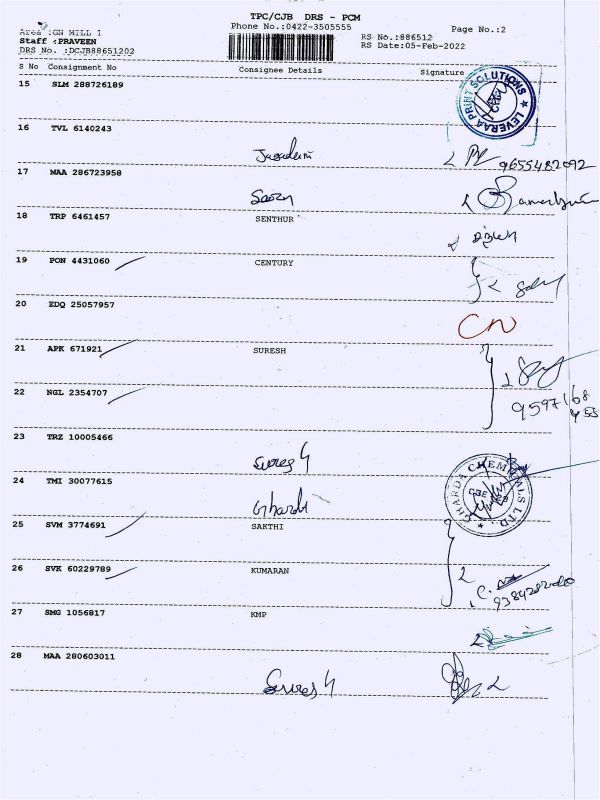 TPC/CJB DRS - PCM
Phone No.:0422-3505555
Page No.:2
Area :GN MILL 1
Staff :PRAVEEN
DRS No. :DCJB88651202
RS No.:886512
RS Date:05-Feb-2022
S No Consignment No Consignee Details Signature
15 SLM 288726189
LEVERAA PRINT SOLUTIONS
16 TVL 6140243
9655482092
17 MAA 286723958
18 TRP 6461457 SENTHUR
19 PON 4431060 CENTURY
20 EDQ 25057957
CN
21 APK 671921 SURESH
22 NGL 2354707
23 TRZ 10005466
Suresh
24 TMI 30077615
GHARDA CHEMICALS LTD.
Gharda
25 SVM 3774691 SAKTHI
26 SVK 60229789 KUMARAN
27 SMG 1056817 KMP
28 MAA 280603011
Suresh